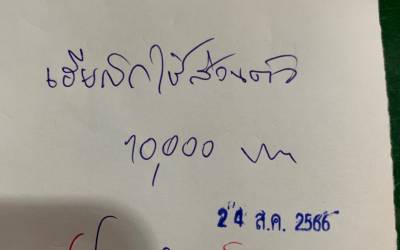 เฮียเบิกใช้ส่วนตัว
10,000 บาท
24 ส.ค. 2566